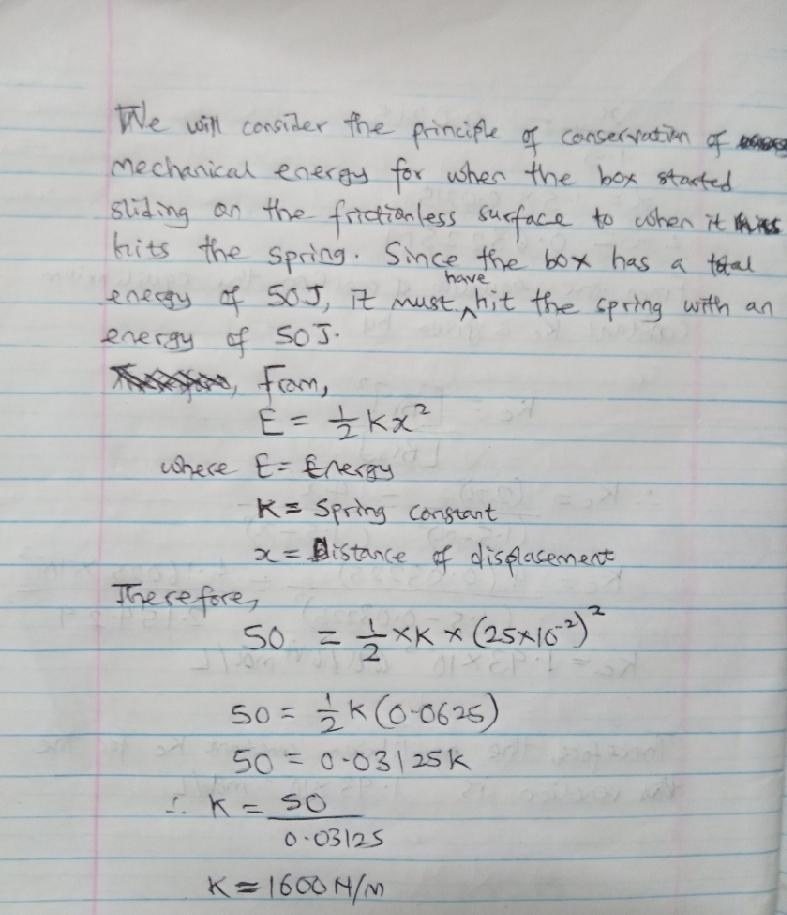 We will consider the principle of conservation of
mechanical energy for when the box started
sliding on the frictionless surface to when it
hits the spring. Since the box has a total
energy of 50J, it must have hit the spring with an
energy of 50J.
, from,
E = 1/2 Kx²
where E = Energy
K = Spring constant
x = Distance of displacement
Therefore,
50 = 1/2 × K × (25×10⁻²)²
50 = 1/2 K (0.0625)
50 = 0.03125K
∴ K = 50/0.03125
K = 1600 N/m